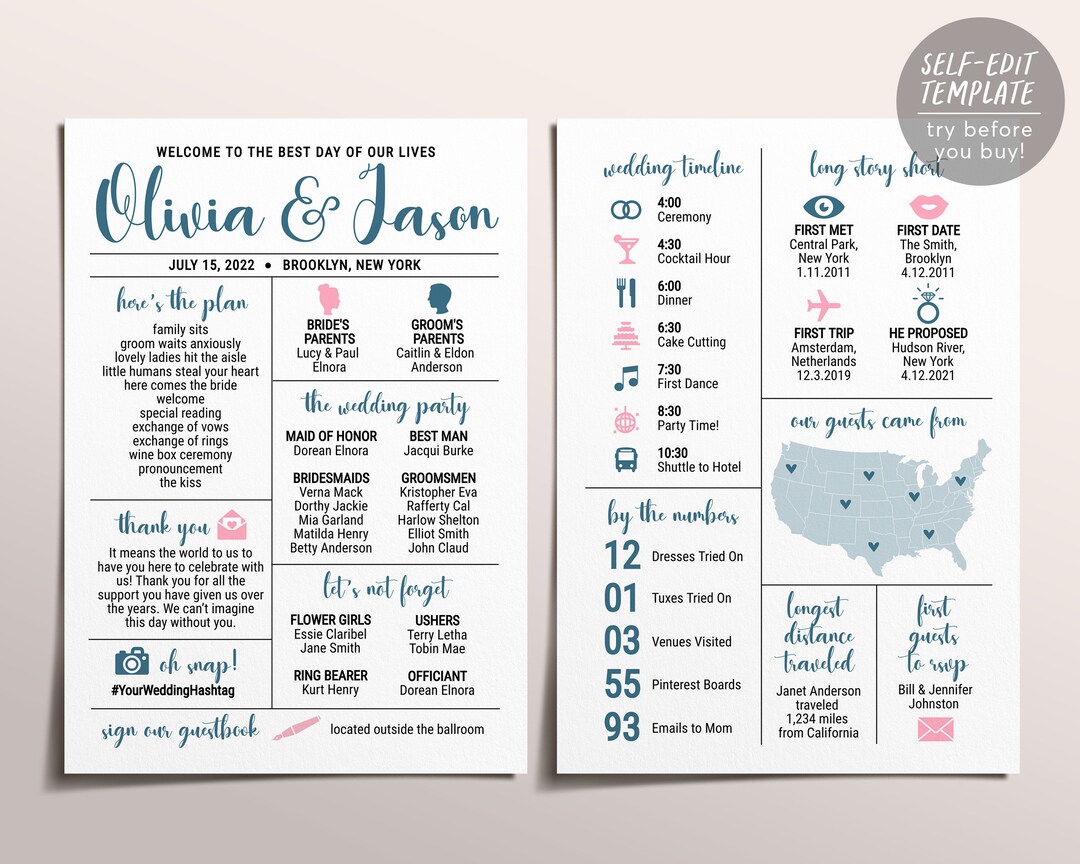 SELF-EDIT
TEMPLATE
try before
you buy!
WELCOME TO THE BEST DAY OF OUR LIVES
Olivia & Jason
JULY 15, 2022 • BROOKLYN, NEW YORK
here's the plan
family sits
groom waits anxiously
lovely ladies hit the aisle
little humans steal your heart
here comes the bride
welcome
special reading
exchange of vows
exchange of rings
wine box ceremony
pronouncement
the kiss
thank you
It means the world to us to
have you here to celebrate with
us! Thank you for all the
support you have given us over
the years. We can't imagine
this day without you.
oh snap!
#YourWeddingHashtag
BRIDE'S
PARENTS
Lucy & Paul
Elnora
GROOM'S
PARENTS
Caitlin & Eldon
Anderson
the wedding party
MAID OF HONOR
Dorean Elnora
BEST MAN
Jacqui Burke
BRIDESMAIDS
Verna Mack
Dorthy Jackie
Mia Garland
Matilda Henry
Betty Anderson
GROOMSMEN
Kristopher Eva
Rafferty Cal
Harlow Shelton
Elliot Smith
John Claud
let's not forget
FLOWER GIRLS
Essie Claribel
Jane Smith
USHERS
Terry Letha
Tobin Mae
RING BEARER
Kurt Henry
OFFICIANT
Dorean Elnora
sign our guestbook
located outside the ballroom
wedding timeline
4:00
Ceremony
4:30
Cocktail Hour
6:00
Dinner
6:30
Cake Cutting
7:30
First Dance
8:30
Party Time!
10:30
Shuttle to Hotel
by the numbers
12 Dresses Tried On
01 Tuxes Tried On
03 Venues Visited
55 Pinterest Boards
93 Emails to Mom
long story short
FIRST MET
Central Park,
New York
1.11.2011
FIRST DATE
The Smith,
Brooklyn
4.12.2011
FIRST TRIP
Amsterdam,
Netherlands
12.3.2019
HE PROPOSED
Hudson River,
New York
4.12.2021
our guests came from
longest
distance
traveled
Janet Anderson
traveled
1,234 miles
from California
first
guests
to rsvp
Bill & Jennifer
Johnston